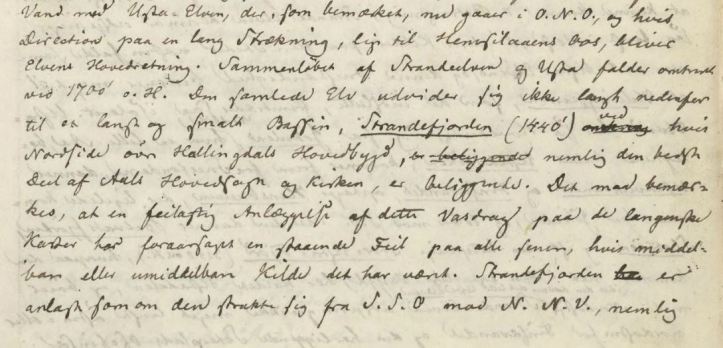 Vand med Usta-Elven, der, som bemærket, nu gaaer i O.N.O., og hvis
Direction paa en lang Strækning, lige til Hemsilaaens Oos, bliver
Elvens Hovedretning. Sammenløbet af Strandeelven og Usta falder omtrent
ved 1700' o. H. Den samlede Elv udvider sig ikke langt nedenfor
til et langt og smalt Bassin, Strandefjorden (1440') ved hvis
Nordside övre Hallingdals Hovedbygd, er beliggende nemlig den bedste
Deel af Aals Hovedsogn og Kirken, er beliggende. Det maa bemær-
kes, at en feilagtig Anlæggelse af dette Vasdrag paa de langenske
Karter har foraarsaget en staaende Feil paa alle senere, hvis middel-
bare eller umiddelbare Kilde det har været. Strandefjorden er
anlagt som om den strakte sig fra S.S.O mod N.N.V., nemlig